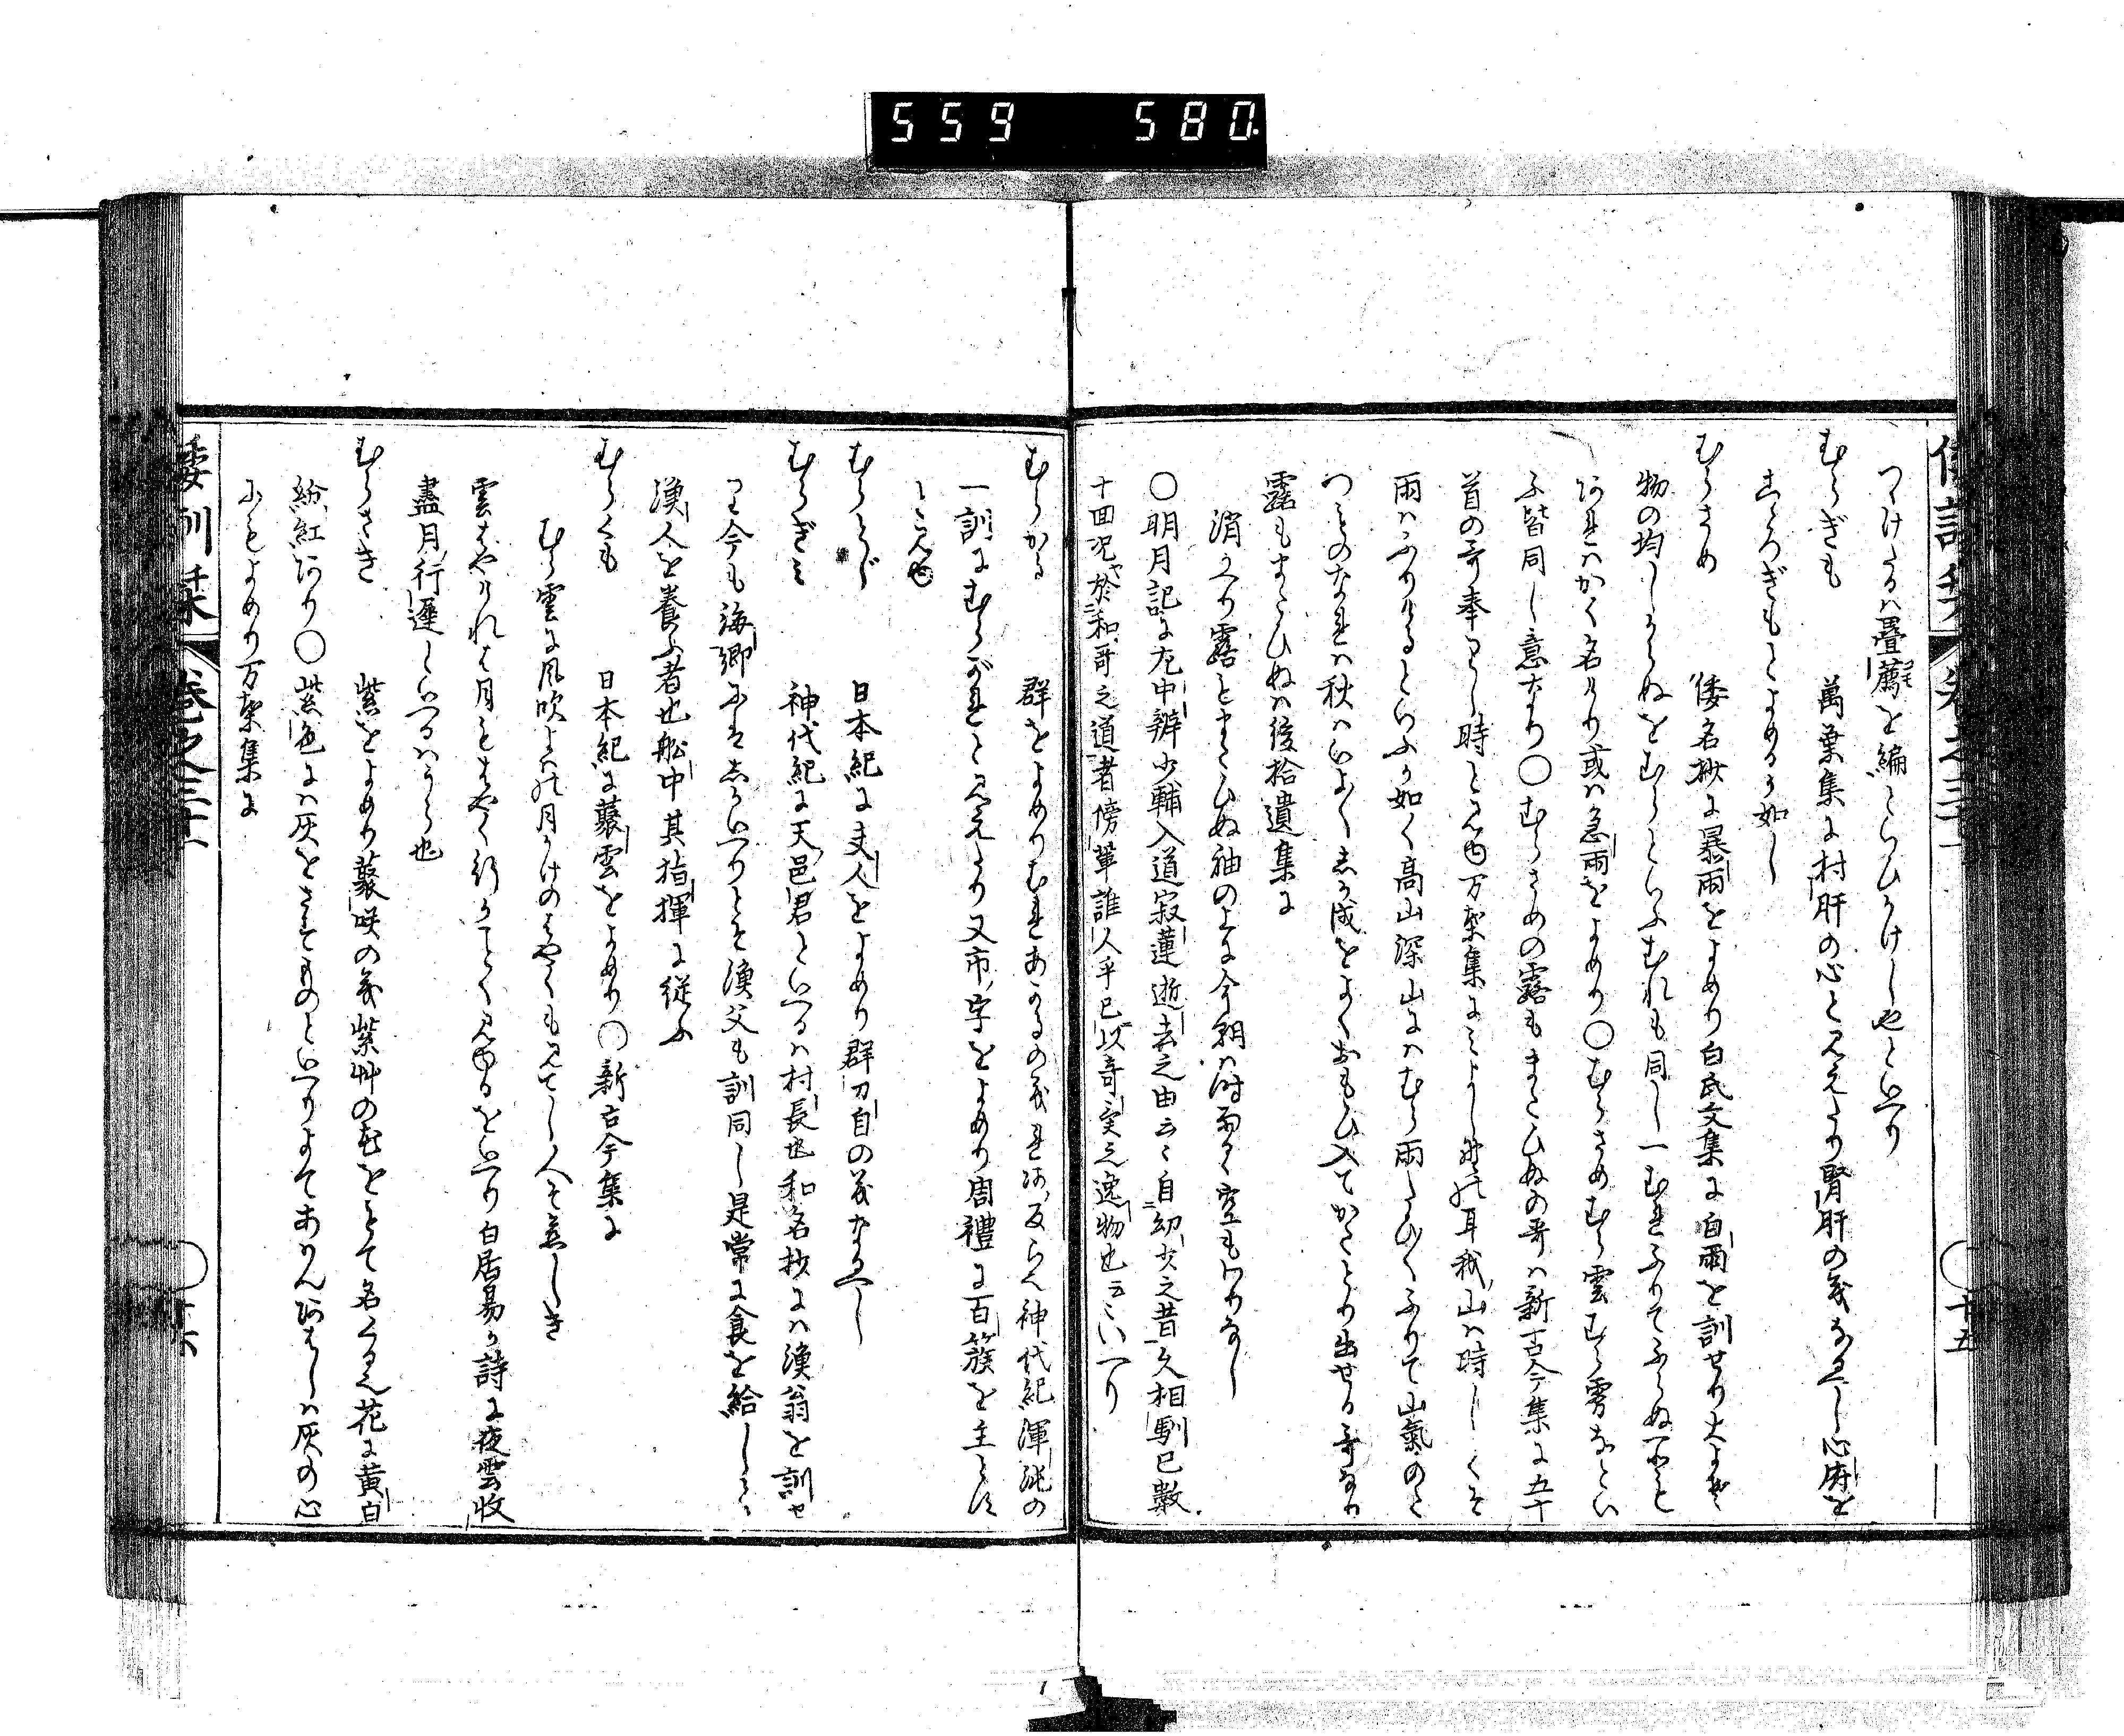 559 580
つけたるハ疊薦を編とらひかけしやといへり
むらぎも 萬葉集に村肝の心と見えたり腎肝の義なるへし心府を
こゝろぎもとよめるか如し
むらさめ 倭名抄に暴雨をよめり白氏文集に白雨を訓せり大よそ
物の均しからぬをむらといふむれも同し一むれふりてふらぬ所も
あれハかく名けり或ハ急雨をよめり○むらさめむら雲むら雾なとい
ふ皆同し意なり○むらさめの露もまたひぬの哥ハ新古今集に五十
首の哥奉りし時と見ゆ万葉集にみよし野の耳我山ハ時しくそ
雨ハふりけるといふか如く高山深山にハむら雨たひ〳〵ふりて山氣のた
つものなれハ秋ハいよ〳〵しか成をよくおもひ入てかくとり出せる哥なり
露もまたひぬハ後拾遺集に
消かへり露もまたひぬ袖の上に今朝ハ時雨るゝ空もわりなし
○明月記に左中辨少輔入道寂蓮逝去之由云々自幼少之昔久相馴已數
十回況於和哥之道者傍輩誰人乎已以奇異之逸物也云々いへり
むらかる 群をよめりむれあかるの義れあ反らへ神代紀渾沌の
一訓にむらがれと見えたり又市字をよめり周禮に百族を主とす
と見ゆ
むらとじ 日本紀に丈人をよめり群刀自の義なるへし
むらぎみ 神代紀に天邑君といへるハ村長也和名抄にハ漁翁を訓せ
り今も海郷にてしかいへりとそ漁父も訓同し是常に食を給しとて
漁人を養ふ者也舩中其指揮に従ふ
むらくも 日本紀に叢雲をよめり○新古今集に
むら雲に風吹よハの月かけのはやくも見てし人そ恋しき
雲はやけれは月もはやく行かことく見ゆるをいへり白居易か詩に夜雲收
盡月行遲といへるハうら也
むらさき 紫をよめり叢咲の義紫艸の花をもて名くる花に黄白
紛紅あり○紫色にハ灰をさすものといへりよてあかんあはしハ灰の心
にもよめり万葉集に
倭訓栞 卷之三十一 十六